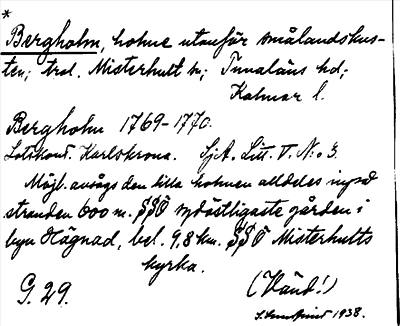 *
Bergholm, holme utanför smålandskus-
ten; trol. Misterhult sn; Tunaläns hd;
Kalmar l.
Bergholm 1769-1770.
Lotskont. Karlskrona. SjA. Litt. V. N:o 3.
Möjl. avsågs den lilla holmen alldeles in på
stranden 600 m. SSO sydöstligaste gården i
byn Hägnad, bel. 9,8 km. SSO Misterhults
kyrka.
G. 29. (Vänd!)
1938.